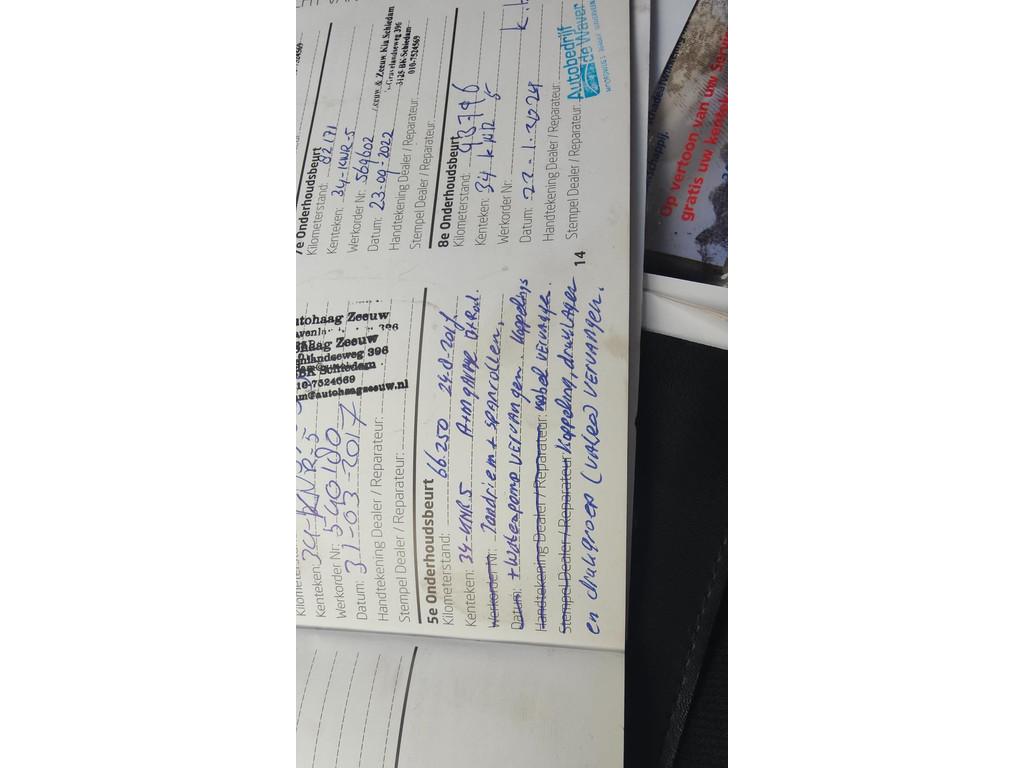 Kenteken: 34-KNR-5
Werkorder Nr: 540180
Datum: 31-03-2017
Handtekening Dealer / Reparateur:
Stempel Dealer / Reparateur:
Autohaag Zeeuw
396
Zeeuw
landseweg 396
BK Schiedam
10-7524569
@autohaagzeeuw.nl
5e Onderhoudsbeurt
Kilometerstand: 66.250 24-8-2017
Kenteken: 34-KNR5
Werkorder Nr: Tandriem + spanrollen,
Datum: + Waterpomp vervangen. Koppelings
Handtekening Dealer / Reparateur: kabel vervangen.
Stempel Dealer / Reparateur: Koppeling, druklager
en drukgroep (Valeo) vervangen.
7e Onderhoudsbeurt
Kilometerstand: 82171
Kenteken: 34-KNR-5
Werkorder Nr: 569602
Datum: 23-09-2022
Handtekening Dealer / Reparateur:
Stempel Dealer / Reparateur:
Zeeuw & Zeeuw Kia Schiedam
's-Gravelandseweg 396
3125 BK Schiedam
010-7524569
8e Onderhoudsbeurt
Kilometerstand: 93796
Kenteken: 34 KNR 5
Werkorder Nr:
Datum: 22-1-2024
Handtekening Dealer / Reparateur:
Stempel Dealer / Reparateur:
Autobedrijf
de Waver
14
Op vertoon van uw
gratis uw